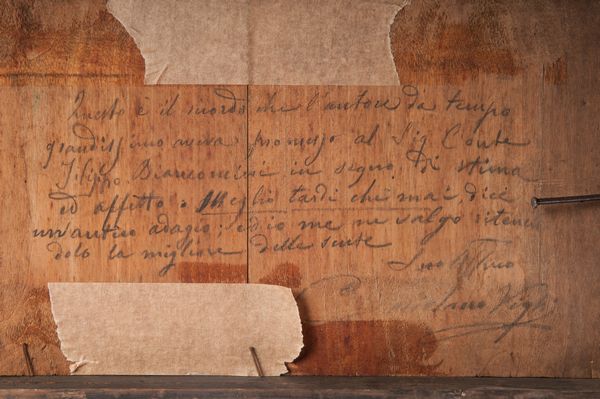 Questo è il ricordo che l'autore da tempo
grandissimo aveva promesso al Sig Conte
Filippo Bianconcini in segno di stima
ed affetto: Meglio tardi che mai, dice
un antico adagio; ed io me ne valgo ritenen
dolo la migliore delle scuse
Suo Affmo